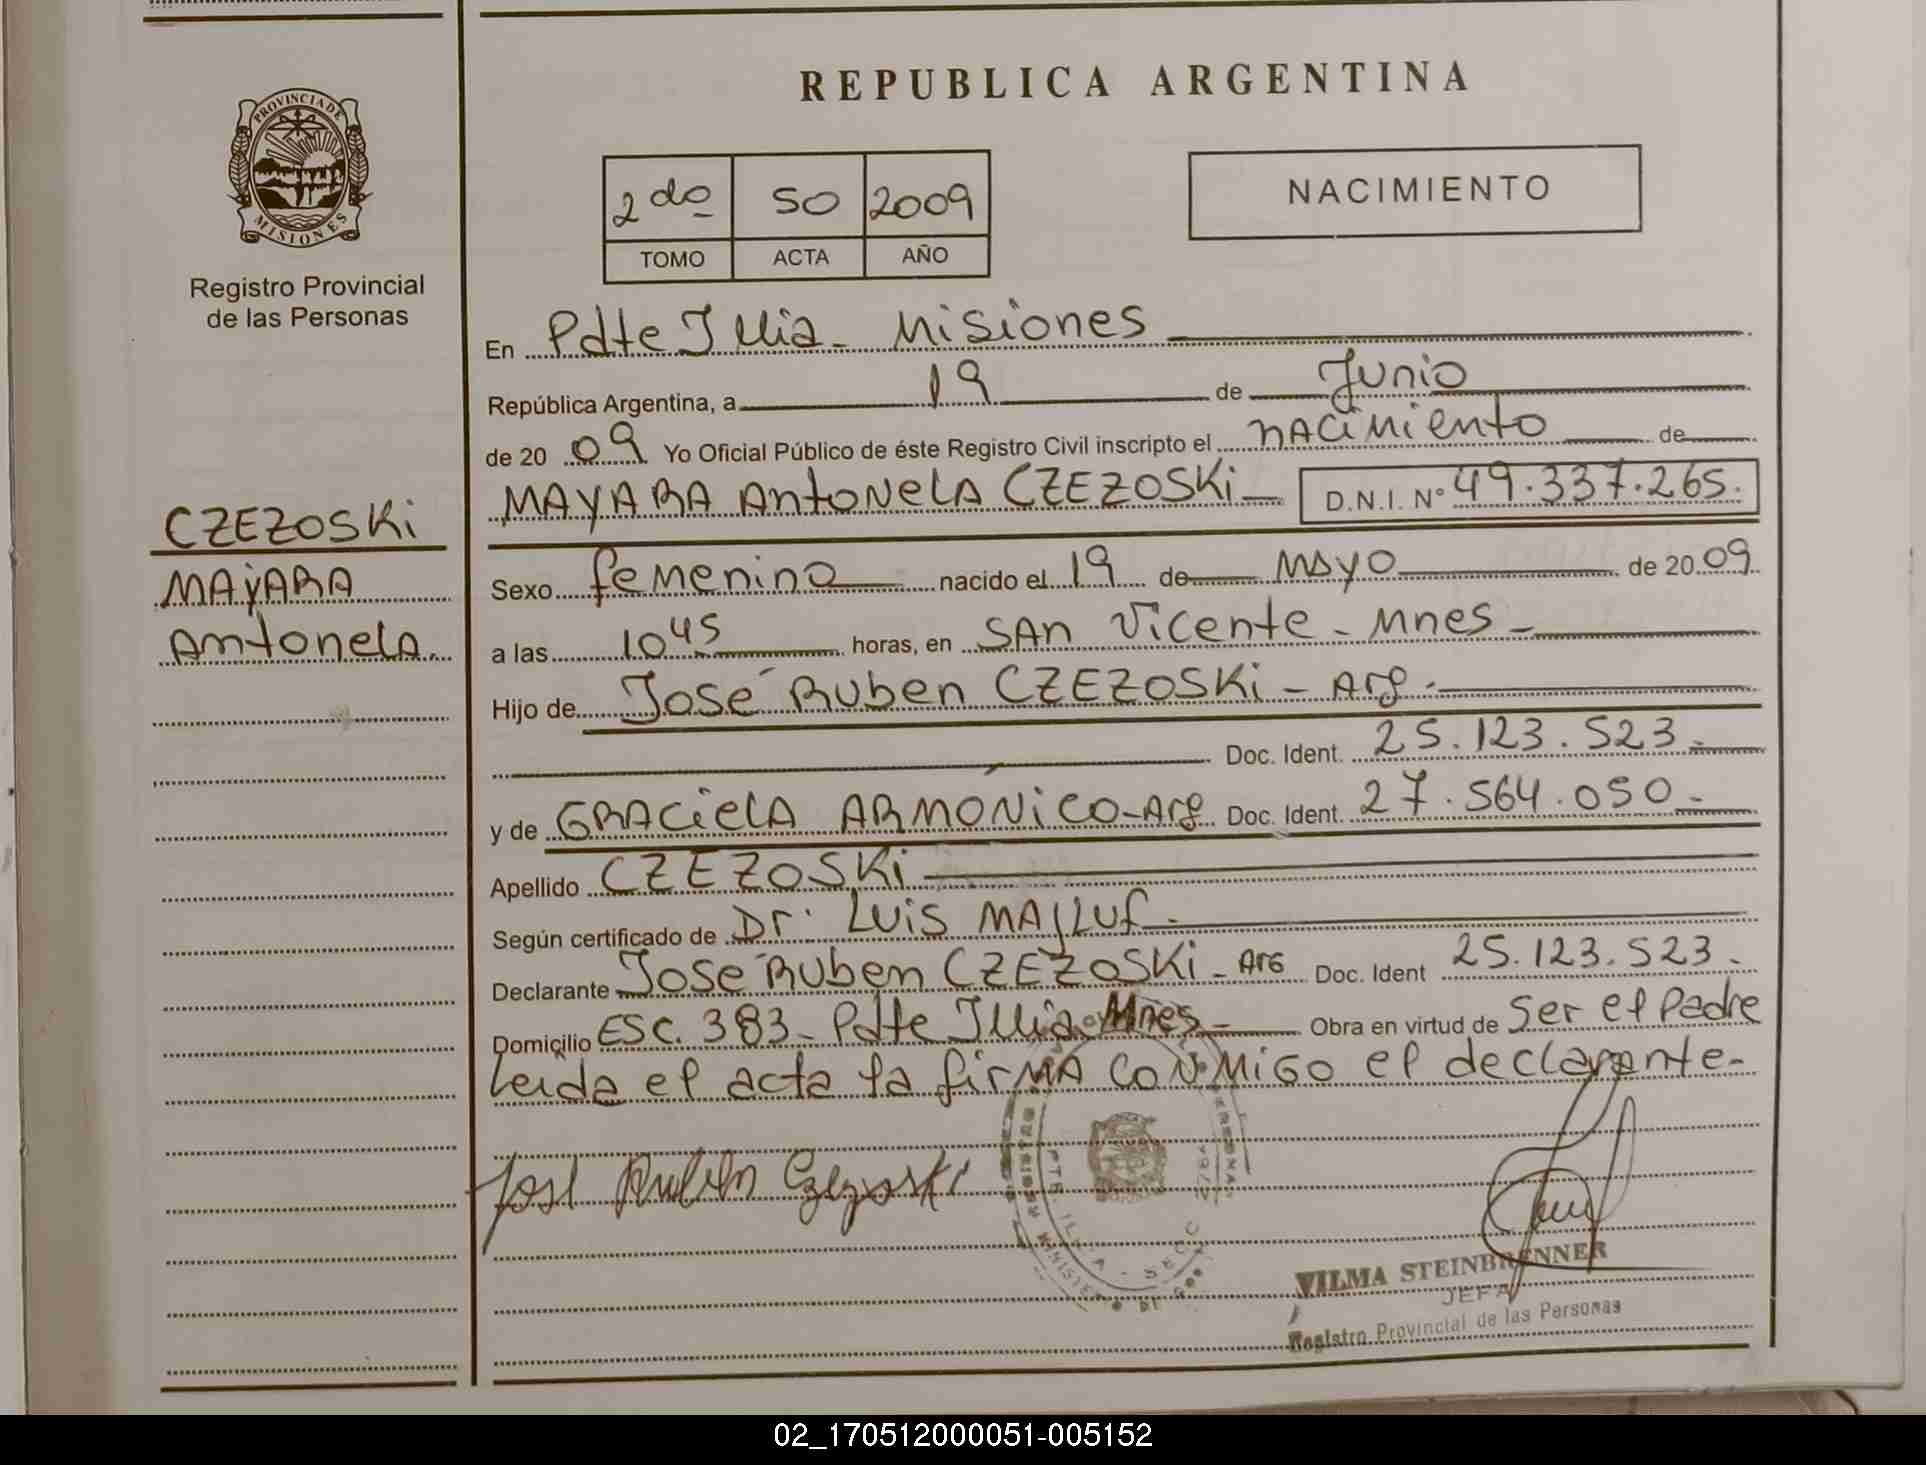 REPUBLICA ARGENTINA
PROVINCIA DE
MISIONES
Registro Provincial
de las Personas
2do 50 2009
TOMO ACTA AÑO
NACIMIENTO
En Pdte Illia - Misiones
República Argentina, a 19 de Junio
de 2009 Yo Oficial Público de éste Registro Civil inscripto el nacimiento de
MAYARA Antonela CZEZOSKi D.N.I. Nº 49.337.265.
CZEZOSKi
MAYARA
Antonela.
Sexo femenino nacido el 19 de Mayo de 2009
a las 10 45 horas, en SAn Vicente - Mnes -
Hijo de José Ruben CZEZOSKi - Arg.
Doc. Ident. 25.123.523.-
y de GRACielA ARMONiCO-Arg Doc. Ident. 27.564.050.-
Apellido CZEZOSKi
Según certificado de Dr. Luis MAlluf.-
Declarante José Ruben CZEZOSKi - Arg Doc. Ident 25.123.523.-
Domicilio ESC. 383 - Pdte Illia Mnes - Obra en virtud de Ser el Padre
Leida el acta la firMA CONMIGO el declarante-
José Ruben Czezoski
VILMA STEINBRENNER
JEFA
Registro Provincial de las Personas
02_170512000051-005152